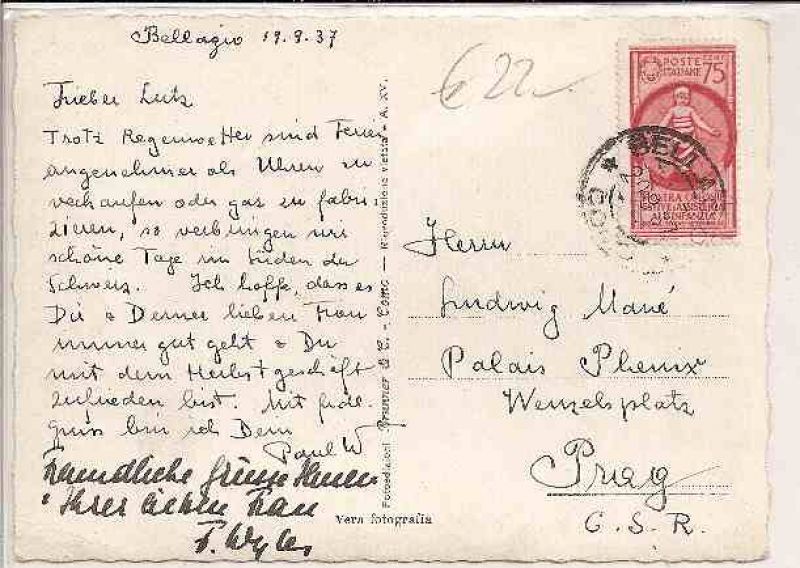 Bellagio 19.9.37
Lieber Lutz
Trotz Regenwetter sind Ferien
angenehmer als Uhren zu
verkaufen oder gar zu fabri-
zieren, so verbringen wir
schöne Tage im Süden der
Schweiz. Ich hoffe, dass es
Dir & Deiner lieben Frau
immer gut geht & Du
mit dem Herbstgeschäft
zufrieden bist. Mit frdl.
Gruss bin ich Dein
Paul W
Freundliche Grüsse Ihnen
& Ihrer lieben Frau
F. Wyler
Fotoedizioni Brunner & C. - Como - Riproduzione vietata - A. XV.
Vera fotografia
€ 22
POSTE ITALIANE
CENT 75
MOSTRA COLONIE
ESTIVE E ASSISTENZA
ALL'INFANZIA
Herrn
Ludwig Mané
Palais Phenix
Wenzelsplatz
Prag
C.S.R.